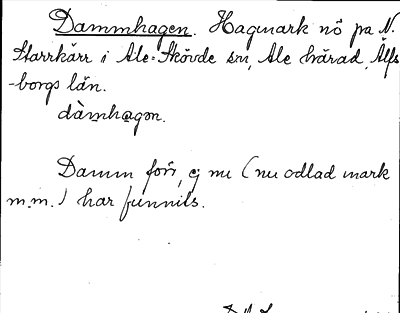 Dammhagen. Hagmark nö på N.
Starrkärr i Ale-Skövde sn, Ale härad, Älfs
-borgs län.
dàmhagen.
Damm förr, ej nu (nu odlad mark
m.m.) har funnits.